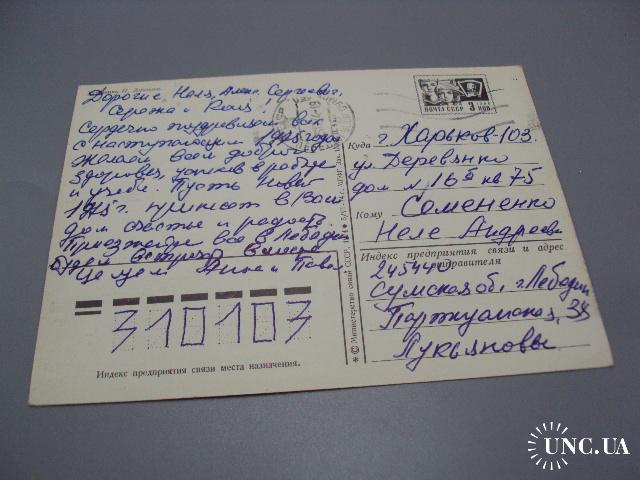 Дорогие Неля, Алекс. Сергеевич,
Сережа и
Сердечно поздравляем вас
с наступающим 1975 годом
Желаем всем доброго
здоровья, успехов в работе
и учебе. Пусть Новый
1975 г. принесет в Ваш
дом счастье и радость.
Приезжайте все в Лебедин
Будем встречать вместе
Целуем
310103
Индекс предприятия связи места назначения.
© Министерство связи СССР,
ПОЧТА СССР 3 КОП
Куда г. Харьков-103.
ул. Деревянко
дом № 16 кв 75
Кому Семененко
Неле Андреевне
Индекс предприятия связи и адрес
отправителя
245440
Сумская об., г. Лебедин
38
Лукьяновы
UNC.UA